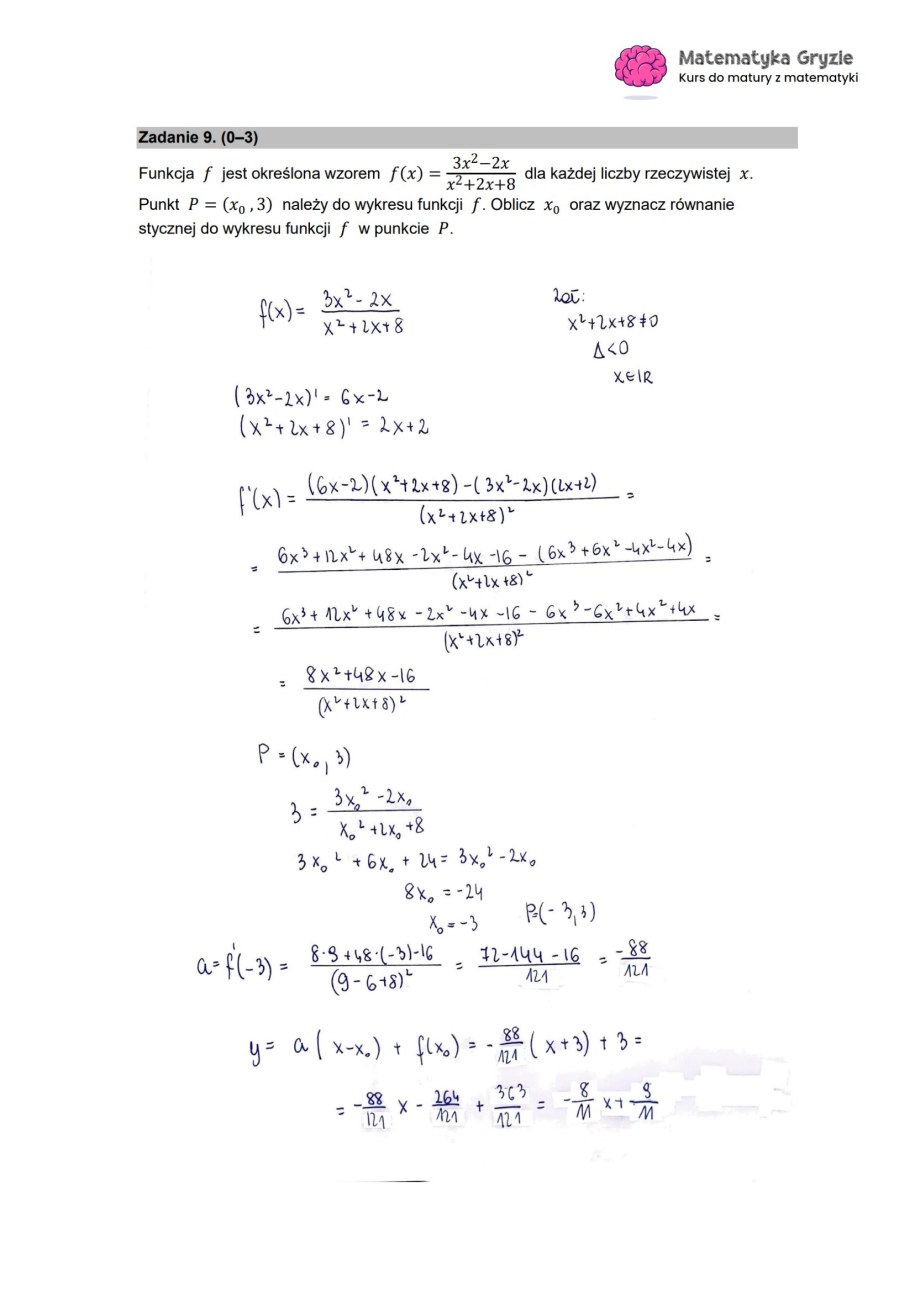 Matematyka Gryzie
Kurs do matury z matematyki
Zadanie 9. (0–3)
Funkcja f jest określona wzorem f(x) = (3x²−2x)/(x²+2x+8) dla każdej liczby rzeczywistej x.
Punkt P = (x₀ , 3) należy do wykresu funkcji f. Oblicz x₀ oraz wyznacz równanie
stycznej do wykresu funkcji f w punkcie P.
f(x) = (3x² - 2x)/(x² + 2x + 8)
Zał:
x²+2x+8 ≠ 0
Δ<0
x∈ℝ
(3x²-2x)' = 6x-2
(x²+2x+8)' = 2x+2
f'(x) = ((6x-2)(x²+2x+8) - (3x²-2x)(2x+2))/(x²+2x+8)² =
= (6x³+12x²+48x-2x²-4x-16-(6x³+6x²-4x²-4x))/(x²+2x+8)² =
= (6x³+12x²+48x-2x²-4x-16-6x³-6x²+4x²+4x)/(x²+2x+8)² =
= (8x²+48x-16)/(x²+2x+8)²
P = (x₀, 3)
3 = (3x₀² - 2x₀)/(x₀² + 2x₀ + 8)
3x₀² + 6x₀ + 24 = 3x₀² - 2x₀
8x₀ = -24
x₀ = -3 P=(-3,3)
a = f'(-3) = (8·9+48·(-3)-16)/(9-6+8)² = (72-144-16)/121 = -88/121
y = a(x-x₀) + f(x₀) = -88/121 (x+3) + 3 =
= -88/121 x - 264/121 + 363/121 = -8/11 x + 9/11